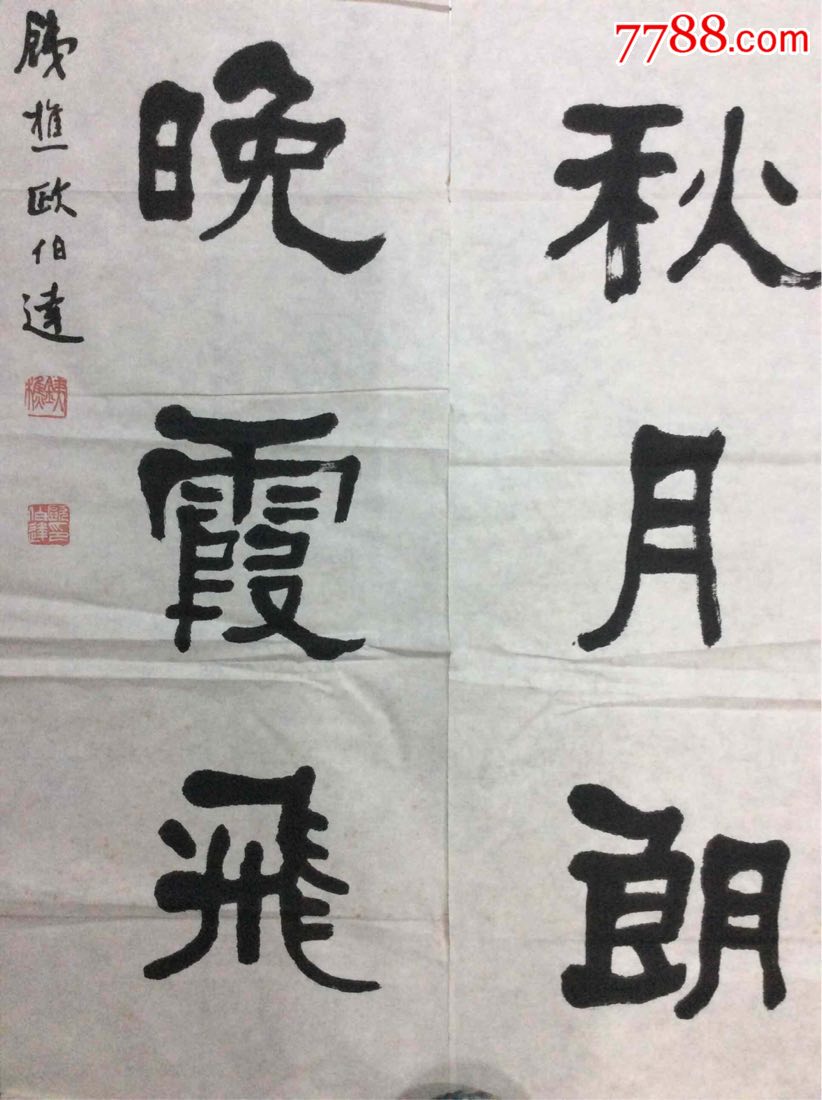 7788.com
秋月朗
晚霞飛
銕樵欧伯達
銕樵